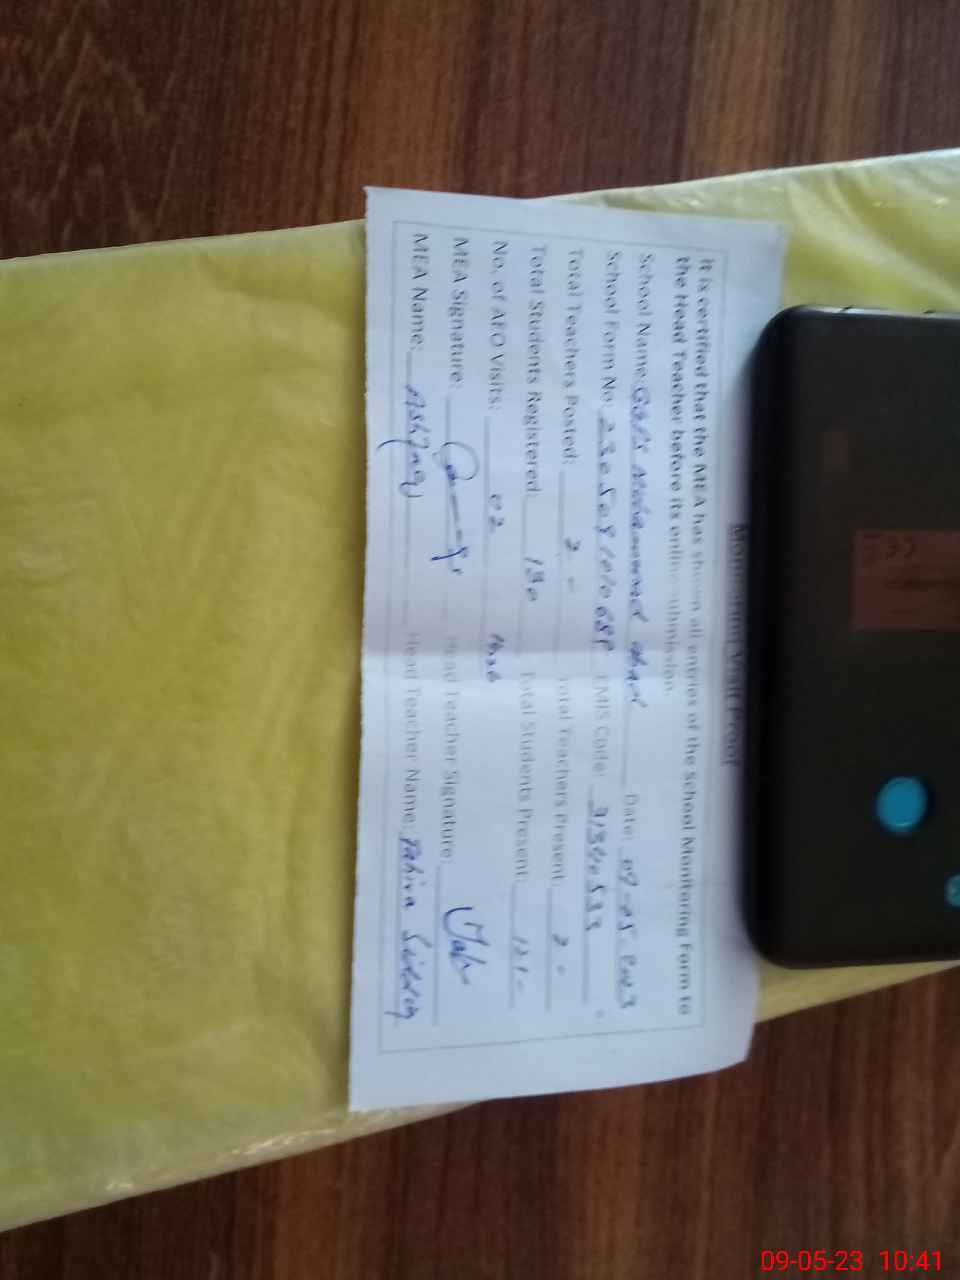 Monitoring Visit Proof
It is certified that the MEA has shown all entries of the School Monitoring Form to
the Head Teacher before its online submission.
School Name: GGPS Muhammad Date: 09-05-2023
School Form No: EMIS Code: 31340533
Total Teachers Posted: 2 - Total Teachers Present: 2 -
Total Students Registered: 130 Total Students Present: 121 -
No. of AEO Visits: 02
MEA Signature: Head Teacher Signature:
MEA Name: Ashfaq Head Teacher Name: Tahira
CE
09-05-23 10:41